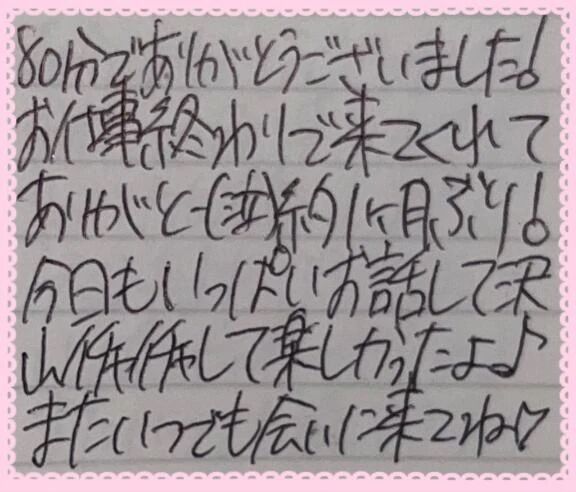 80分でありがとうございました!
お仕事終わりで来てくれて
ありがとー(泣)約1ヶ月ぶり!
今日もいっぱいお話して沢
山イチャイチャして楽しかったよ♪
またいつでも会いに来てね♡